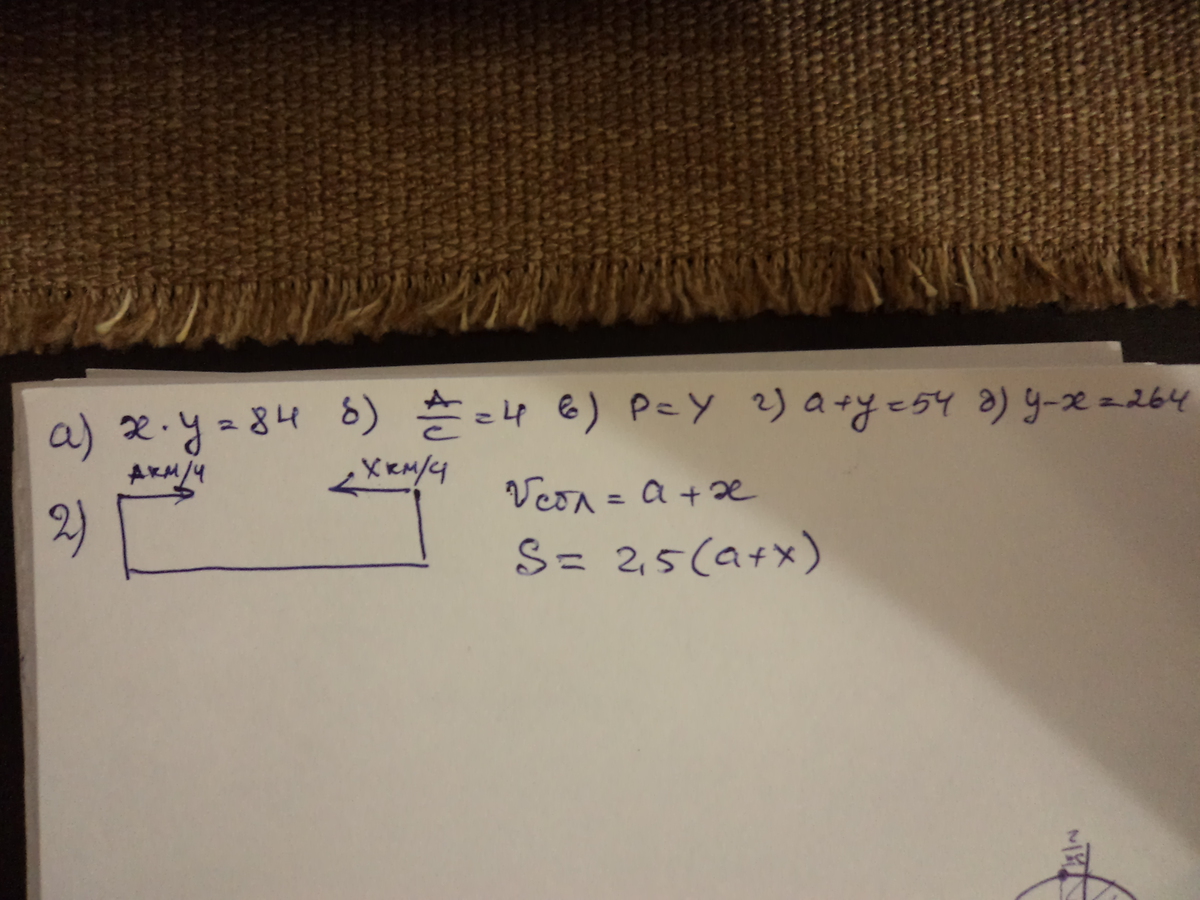 а) x · y = 84 б) A/C = 4 в) P = Y г) a + y = 54 д) y – x = 264
A км/ч X км/ч
2) Vсбл = a + x
S = 2,5 (a + x)